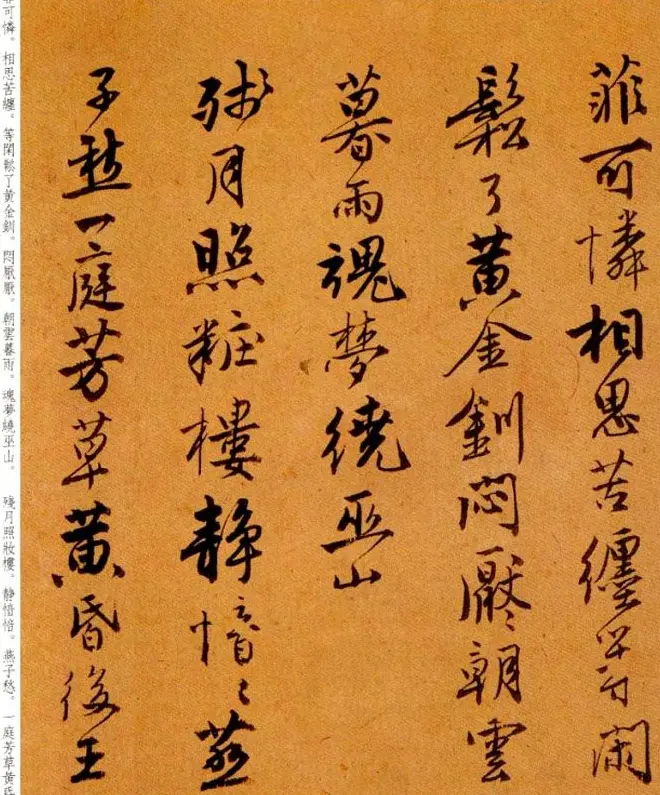 菲可憐相思苦纏等閑
鬆了黄金釧悶厭〻朝雲
暮雨魂夢繞巫山
残月照粧樓静愔〻燕
子愁一庭芳草黄昏後王
可憐。相思苦纏。等閑鬆了黄金釧。悶厭厭。朝雲暮雨。魂夢繞巫山。 殘月照妝樓。静愔愔。燕子愁。一庭芳草黄昏